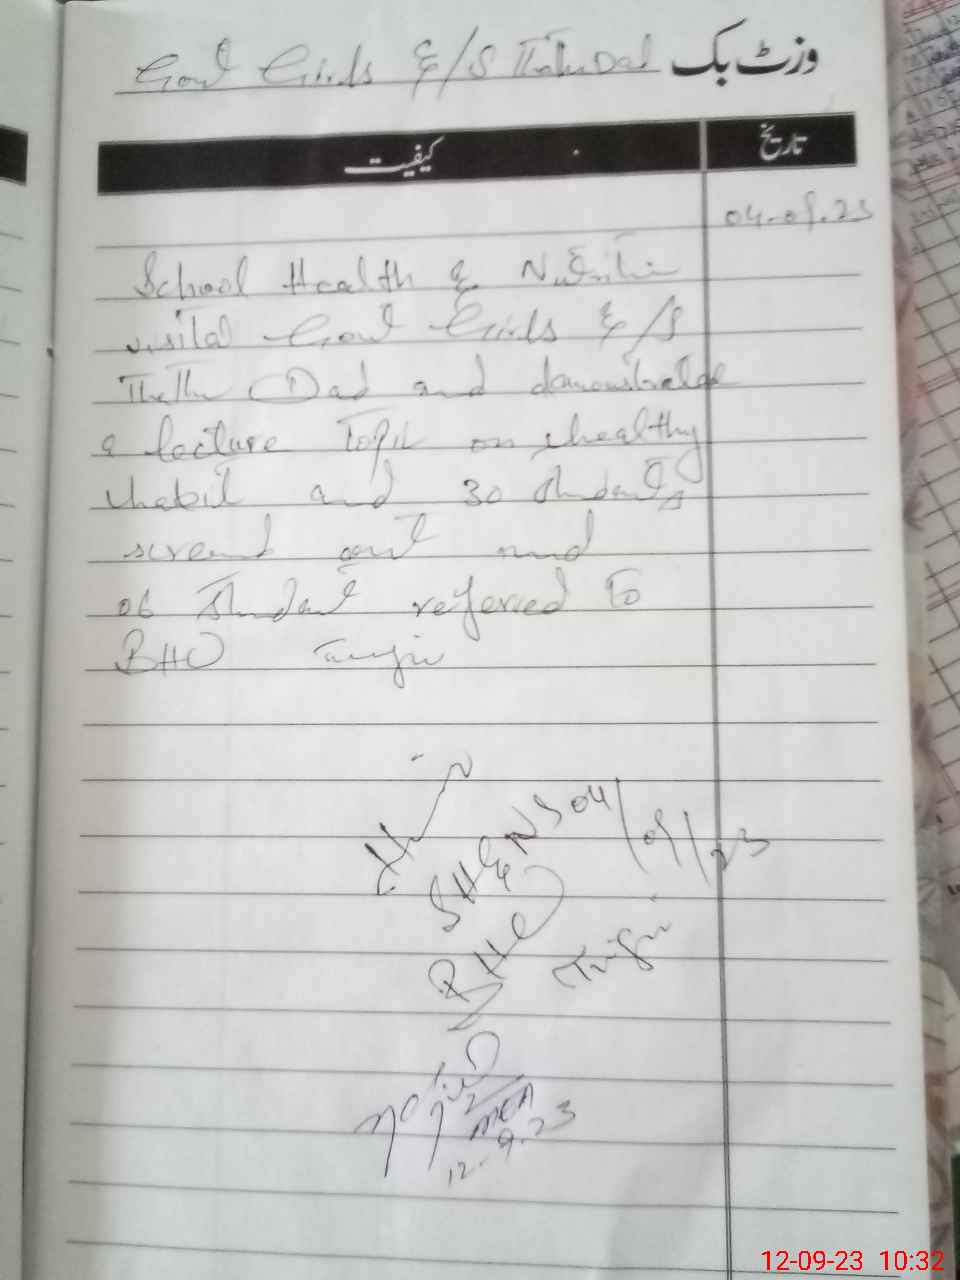 Govt Girls E/S Thathi Dad وزٹ بک
کیفیت تاریخ
04.09.23
School Health & Nutrition
visited Govt Girls E/S
Dad and demonstrated
a lecture Topic on healthy
habit and 30 students
out and
06 student referred to
BHU
SH&NS 04/09/23
BHU
Noted
MEA
12-9-23
12-09-23 10:32